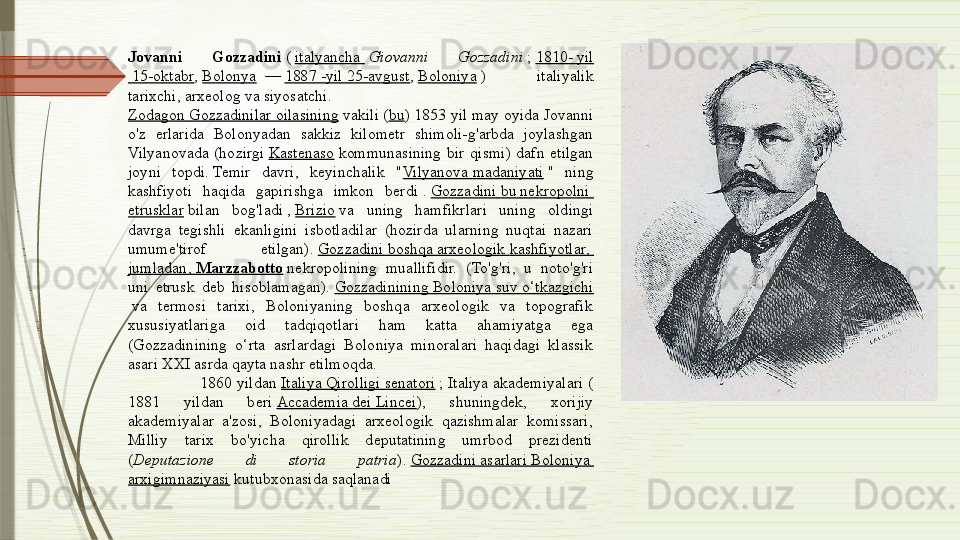 Jovanni Gozzadini ( italyancha Giovanni Gozzadini ; 1810- yil
15-oktabr, Bolonya — 1887 -yil 25-avgust, Boloniya ) italiyalik
tarixchi, arxeolog va siyosatchi.
Zodagon Gozzadinilar oilasining vakili (bu) 1853 yil may oyida Jovanni
o'z erlarida Bolonyadan sakkiz kilometr shimoli-g'arbda joylashgan
Vilyanovada (hozirgi Kastenaso kommunasining bir qismi) dafn etilgan
joyni topdi. Temir davri, keyinchalik "Vilyanova madaniyati " ning
kashfiyoti haqida gapirishga imkon berdi . Gozzadini bu nekropolni
etrusklar bilan bog'ladi , Brizio va uning hamfikrlari uning oldingi
davrga tegishli ekanligini isbotladilar (hozirda ularning nuqtai nazari
umume'tirof etilgan). Gozzadini boshqa arxeologik kashfiyotlar,
jumladan, Marzzabotto nekropolining muallifidir. (To'g'ri, u noto'g'ri
uni etrusk deb hisoblamagan). Gozzadinining Boloniya suv o‘tkazgichi
va termosi tarixi, Boloniyaning boshqa arxeologik va topografik
xususiyatlariga oid tadqiqotlari ham katta ahamiyatga ega
(Gozzadinining o‘rta asrlardagi Boloniya minoralari haqidagi klassik
asari XXI asrda qayta nashr etilmoqda.
1860 yildan Italiya Qirolligi senatori ; Italiya akademiyalari (
1881 yildan beri Accademia dei Lincei), shuningdek, xorijiy
akademiyalar a'zosi, Boloniyadagi arxeologik qazishmalar komissari,
Milliy tarix bo'yicha qirollik deputatining umrbod prezidenti
(Deputazione di storia patria). Gozzadini asarlari Boloniya
arxigimnaziyasi kutubxonasida saqlanadi